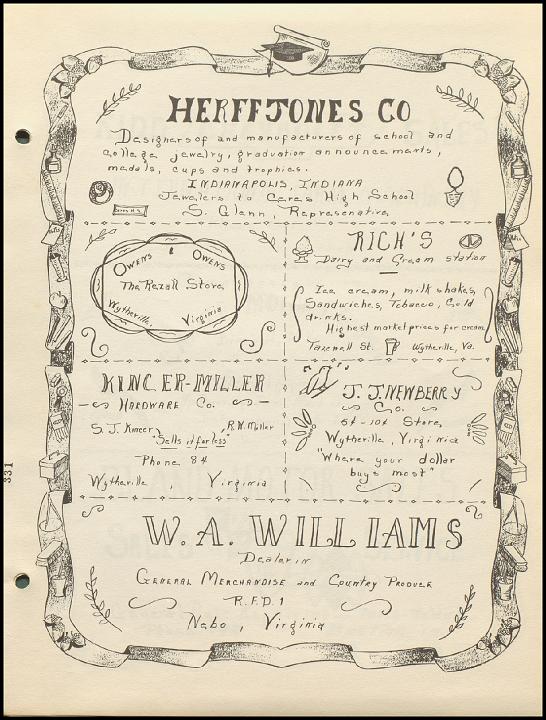 HERFFJONES CO
Designers of and manufacturers of school and
college jewelry, graduation announcements,
medals, cups and trophies.
INDIANAPOLIS, INDIANA
Jewelers to Ceres High School
S. Glenn, Represenative
OWENS & OWENS
The Rexall Store
Wytheville, Virginia
RICH'S
Dairy and Cream station
Ice cream, milk shakes,
Sandwiches, Tobacco, Cold
drinks.
Highest market prices for cream
Tazewell St. Wytheville, Va.
KINCER-MILLER
HARDWARE CO.
S.J. Kincer, R.W. Miller
"Sells it for less"
Phone 84
Wytheville, Virginia
J.J. NEWBERRY
Co.
5¢-10¢ Store,
Wytheville, Virginia
"Where your dollar
buys most"
W.A. WILLIAMS
Dealer in
GENERAL MERCHANDISE and COUNTRY PRODUCE
R.F.D. 1
Nebo, Virginia
331